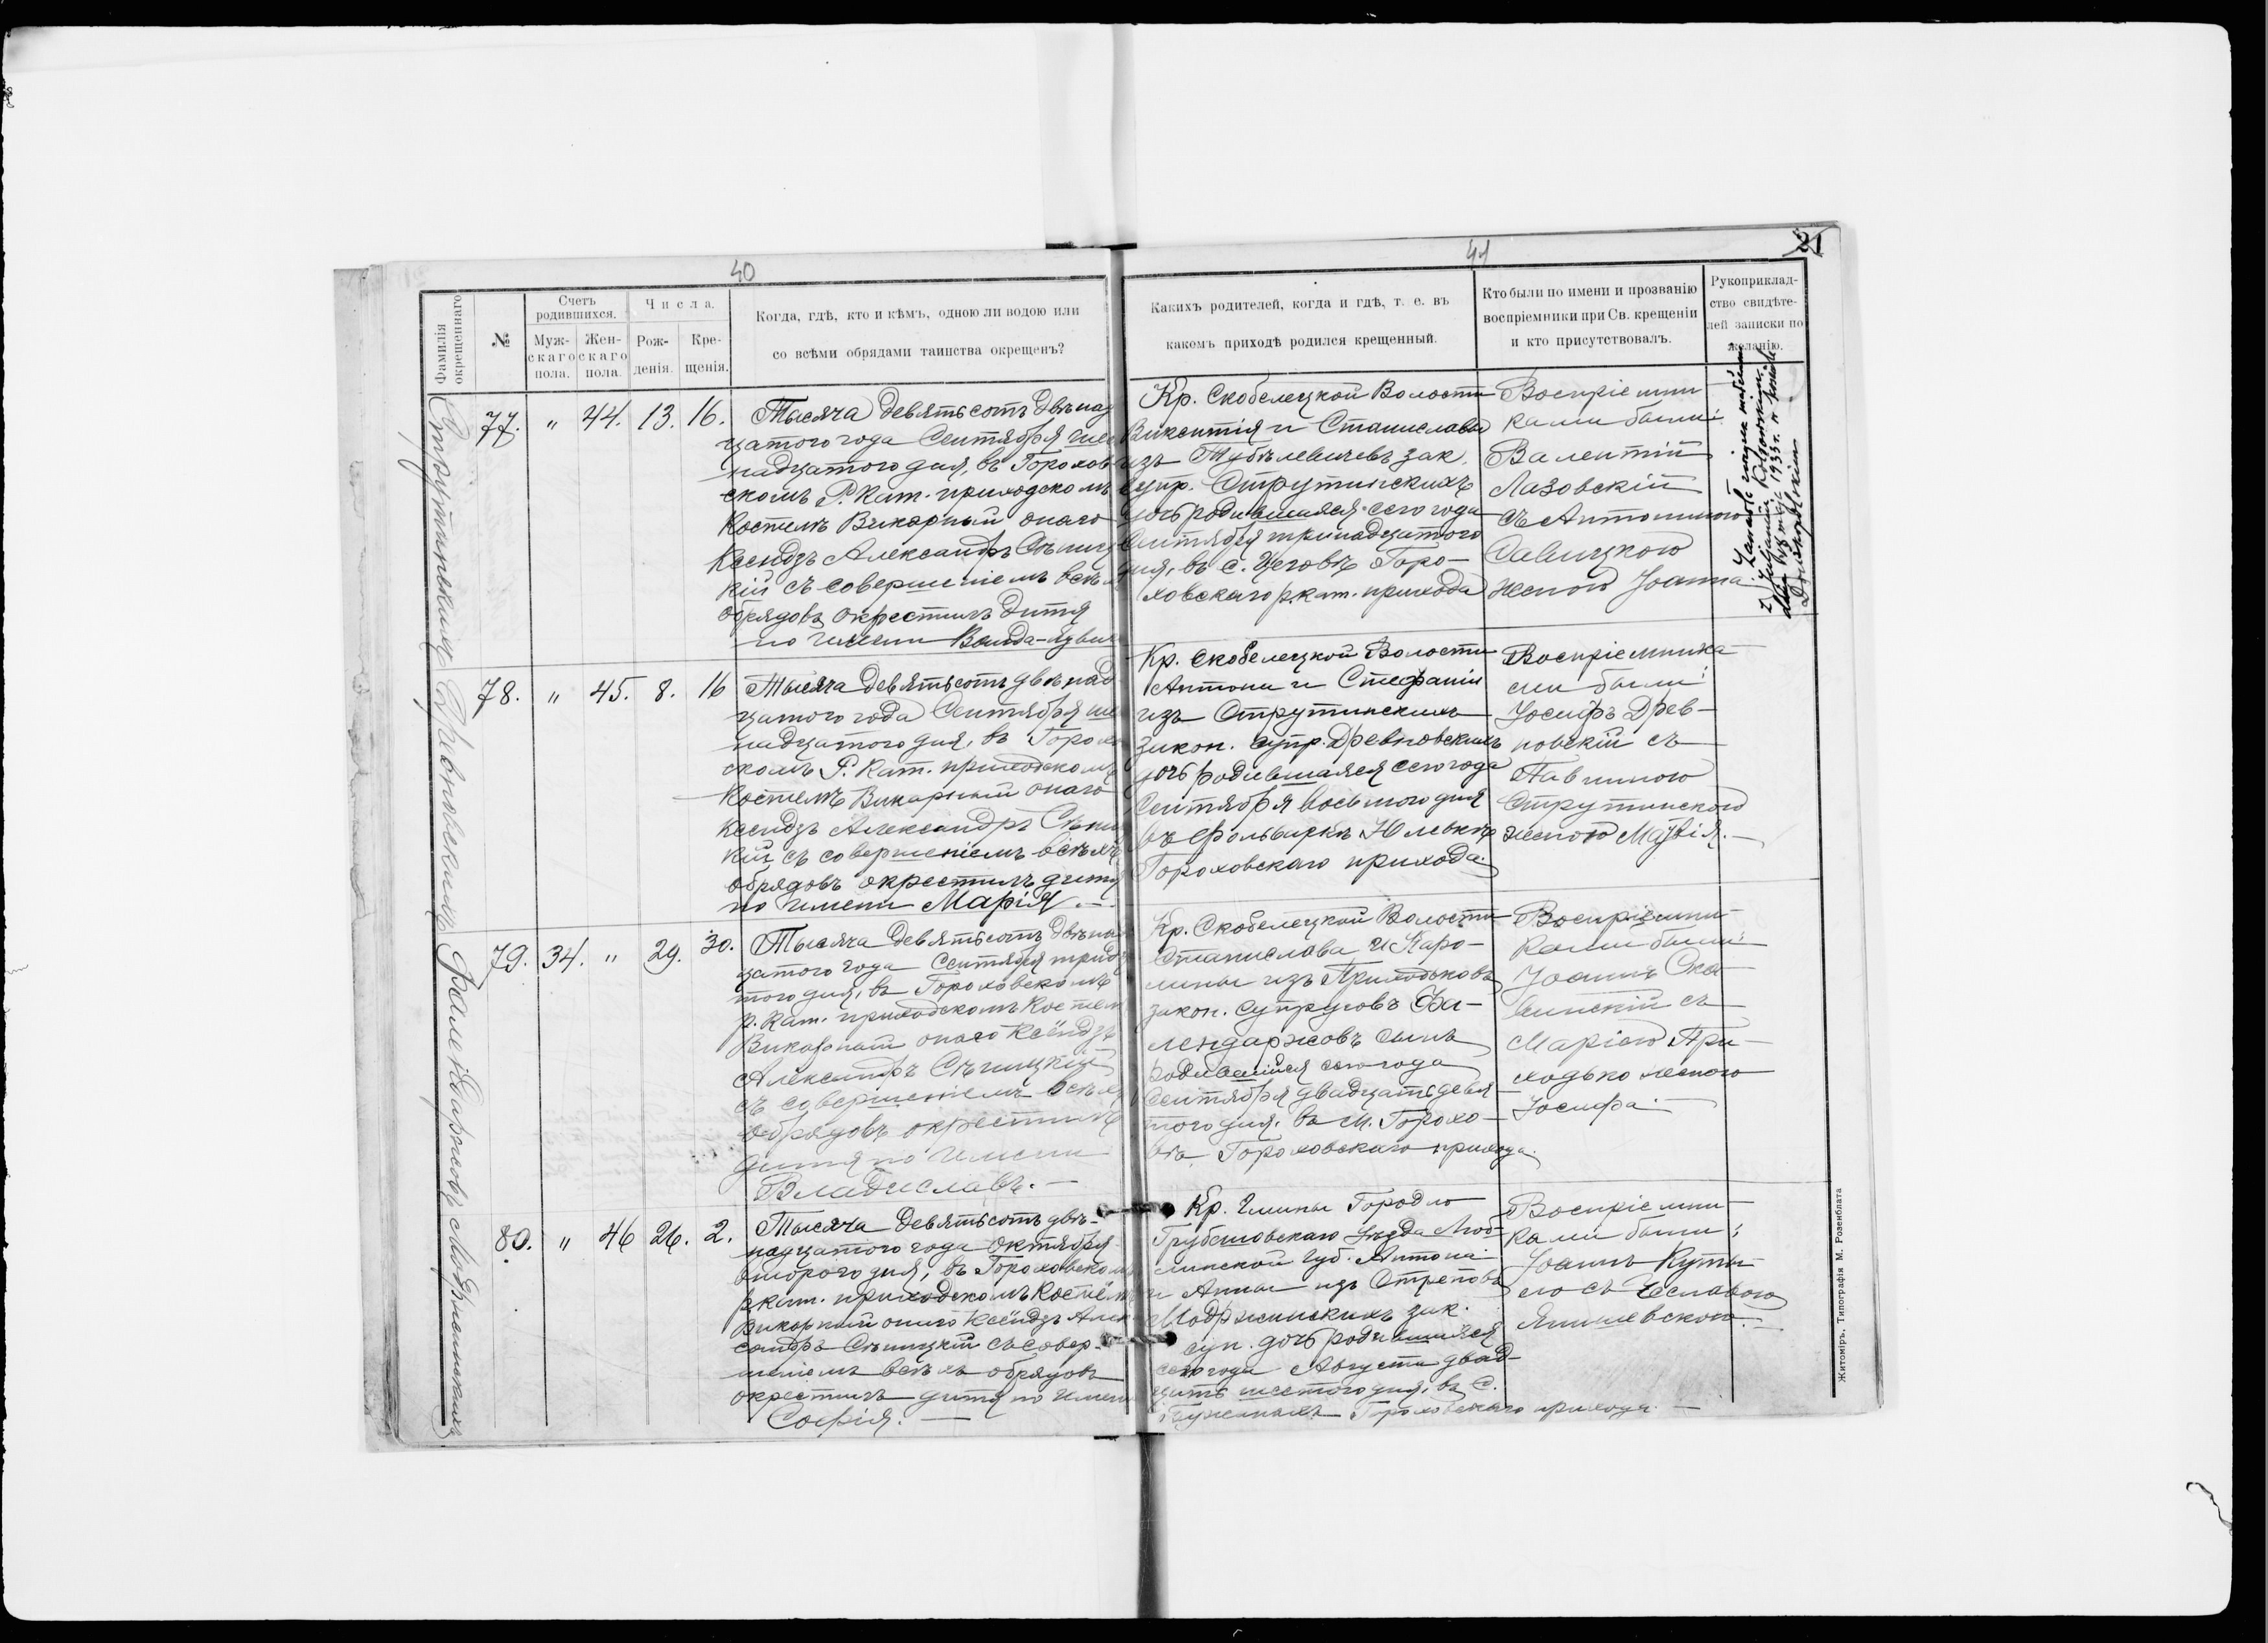 40
41
21
Фамилія окрещеннаго.
№
Счетъ родившихся.
Муж-
скаго
пола.
Жен-
скаго
пола.
Числа.
Рож-
денія.
Кре-
щенія.
Когда, гдѣ, кто и кѣмъ, одною ли водою или
со всѣми обрядами таинства окрещенъ?
Какихъ родителей, когда и гдѣ, т. е. въ
какомъ приходѣ родился крещенный.
Кто были по имени и прозванію
воспріемники при Св. крещеніи
и кто присутствовалъ.
Рукоприклад-
ство свидѣте-
лей записки по
желанію.
Струтинскихъ
77. " 44. 13. 16.
Тысяча девятьсотъ двѣнад
цатого года Сентября шес
надцатого дня, въ Горохов
скомъ Р. Кат. приходскомъ
Костелѣ Викарный онаго
Ксендзъ Александръ Сѣниц
кій съ совершеніемъ всѣхъ
обрядовъ окрестилъ дитя
по имени Ванда-Ядвига
Кр. Скобелецкой Волости
Викентія и Станиславы
изъ зак.
супр. Струтинскихъ
дочь родившаяся сего года
Сентября тринадцатого
дня, въ с. Цеговѣ Горо-
ховскаго р. кат. прихода
Воспріемни
ками были:
Валентій
Лазовскій
съ Антониною
Савицкою
женою Іоанна
Древновскихъ
78. " 45. 8. 16
Тысяча девятьсотъ двѣнад
цатого года Сентября шес
надцатого дня, въ Горохов
скомъ Р. Кат. приходскомъ
Костелѣ Викарный онаго
Ксендзъ Александръ Сѣниц
кій съ совершеніемъ всѣхъ
обрядовъ окрестилъ дитя
по имени Марія.—
Кр. Скобелецкой Волости
Антона и Стефаніи
изъ Струтинскихъ
закон. супр. Древновскихъ
дочь родившаяся сего года
Сентября восьмого дня
въ фольваркѣ Юлевкѣ
Гороховскаго прихода.
Воспріемника
ми были:
Іосифъ Древ-
новскій съ
Павлиною
Струтинскою
женою
Фалендаржовъ
79. 34. " 29. 30.
Тысяча девятьсотъ двѣнад
цатого года Сентября тридца
того дня, въ Гороховскомъ
р. Кат. приходскомъ Костелѣ
Викарный онаго Ксёндзъ
Александръ Сѣницкій
съ совершеніемъ всѣхъ
обрядовъ окрестилъ
дитя по имени
Владиславъ.—
Кр. Скобелецкой Волости
Станислава и Каро-
лины изъ Приходьковъ
закон. супруговъ Фа-
лендаржовъ сынъ
родившійся сего года
Сентября двадцать девя
того дня, въ м. Горохо-
вѣ Гороховскаго прихода.
Воспріемни
ками были:
Іоаннъ Ска-
бинскій съ
Маріею При-
ходько женою
Іосифа.—
Модржинскихъ
80. " 46 26. 2.
Тысяча девятьсотъ двѣ-
надцатого года Октября
второго дня, въ Гороховском
р. кат. приходскомъ Костёлѣ
Викарный онаго Ксёндзъ Алек
сандръ Сѣницкій съ совер-
шеніемъ всѣхъ обрядовъ
окрестилъ дитя по имени
Софія.—
Кр. Гмины Городло
Грубешовскаго Уѣзда Люб-
линской губ. Антона
и Анны изъ
Модржинскихъ зак.
суп. дочь родившаяся
сего года Августа двад-
цать шестого дня, въ с.
Гороховскаго прихода.—
Воспріемни
ками были:
Іоаннъ Куты-
ло съ Чеславою
Янишевскою.—
Житоміръ, Типографія М. Розенблата